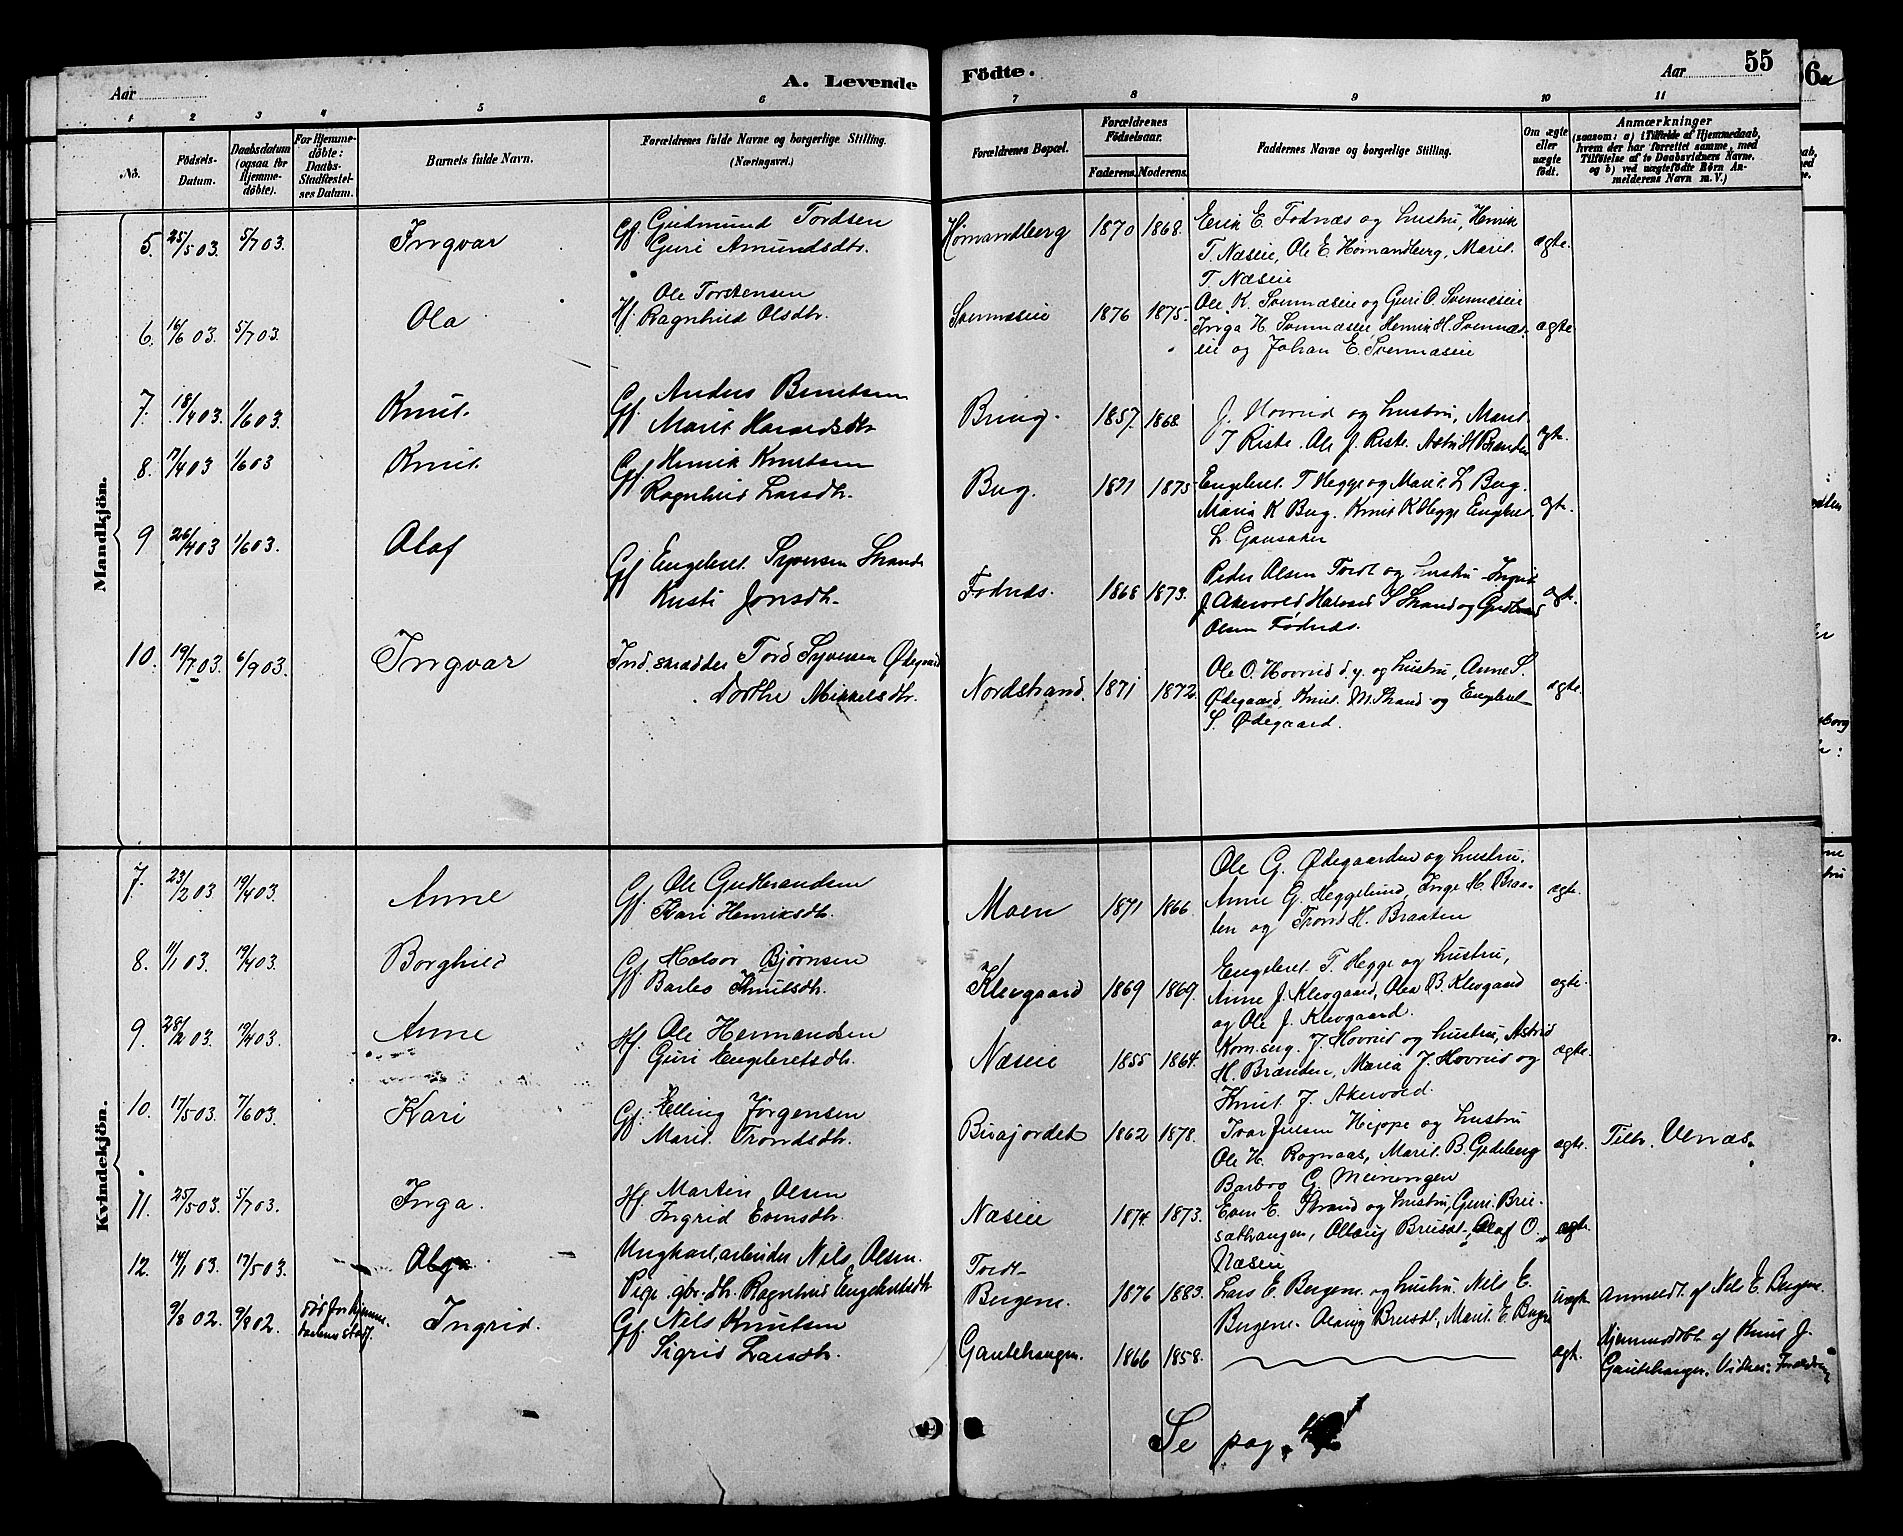 A. Levende Fødte.
55
Aar
Aar
1 2 3 4 5 6 7 8 9 10 11
No.
Fødsels-Datum.
Daabsdatum (ogsaa for Hjemmedøbte).
For Hjemmedøbte: Daabs-Stadfæstelses Datum.
Barnets fulde Navn.
Forældrenes fulde Navne og borgerlige Stilling. (Næringsvei.)
Forældrenes Bopæl.
Forældrenes Fødselsaar.
Faderens. Moderens.
Faddernes Navne og borgerlige Stilling.
Om ægte eller uægte født.
Anmærkninger
(saasom: a) i Tilfælde af Hjemmedaab, hvem der har forrettet samme, med Tilføielse af to Daabsvidners Navne. og b) ved uægtefødte Børn Anmelderens Navn m. V.)
Mandkjön.
5. 25/5 03. 5/7 03. Ingvar Gf. Gudmund Tordsen
Guri Amundsdtr. Hømandberg 1870 1868. Erik E. Fodnæs og hustru, Henrik
T. Næseie, Ole E. Hømandberg, Marit
T. Næseie ægte.
6. 16/6 03. 5/7 03. Ola Hf. Ole Torstensen
Ragnhild Olsdtr. Svennæseie 1876 1875. Ole K. Svennæseie og Guri O. Svennæseie
Inga H. Svennæseie, Henrik H. Svennæs-
eie og Johan E. Svennæseie ægte
7. 18/4 03. 1/6 03. Knut. Gf. Anders Berntsen
Marit Haraldsdtr Bring. 1857. 1868. J. Hovrud og hustru, Marit
J Riste. Ole J. Riste. Astri H Brænden ægt.
8. 17/4 03 1/6 03 Knut. Gf. Henrik Knutsen
Ragnhild Larsdtr. Berg. 1871 1875 Engebret T Hegge og Marit L Berg.
Maria K Berg. Knut K Hegge Engebr.
L. Gausaker ægt.
9 26/4 03 1/6 03. Olaf Gf. Engebret Syversen Strand
Kristi Jonsdtr. Fodnæs. 1868 1873. Peder Olsen Tordt og hustru Ingrid
J. Akervold Halvard S Strand og Gudbrand
Olsen Fødnæs. ægt.
10. 19/7 03. 6/9 03. Ingvar Ind. skrædder Tord Syversen Ødegaard
Dorthe Mikkelsdtr. Nordstrand. 1871 1872. Ole O. Hovrud d. y. og hustru, Anne S.
Ødegaard, Knut M. Strand og Engebret
S. Ødegaard. ægte.
Kvindekjön.
7. 23/2 03 19/4 03. Anne Gf. Ole Gudbrandsen
Kari Henriksdtr. Moen 1871 1866. Ole G. Ødegaarden og hustru.
Anne G. Heggelund, Inge H. Braa-
ten og Trond H. Braaten ægte.
8. 11/1 03. 19/4 03. Borghild Gf. Halvor Bjørnsen
Barbo Knutsdtr. Klevgaard 1869 1869. Engebret T. Hegge og hustru,
Anne J. Klevgaard, Ola B. Klevgaard
og Ole J. Klevgaard. ægte.
9. 28/2 03. 19/4 03. Anne Hf. Ole Hermandsen
Guri Engebretsdtr. Næseie 1855 1864. Kom.serg. J Hovrud og hustru, Astrid
H. Brænden, Maria J. Hovrud og
Knut J. Akervold. ægte.
10. 17/5 03. 7/6 03. Kari Gf. Elling Jørgensen
Marit Trondsdtr. Bisajordet 1862 1878. Ivar Juelsen Hippe og hustru
Ole H. Rognaas, Marit B. Gjeldberg
Barbro G. Meiningen ægte. Tilh. Ulnæs.
11. 25/5 03. 5/7 03. Inga. Hf. Martin Olsen
Ingrid Evensdtr. Næseie 1874. 1873. Even E. Strand og hustru, Guri Brei-
sethaugen, Olaug Breisdt, Olaf O.
Næseie ægte.
12. 14/1 03 17/5 03. Olga Ungkarl, arbeider Nils Olsen.
Pige gbr. dtr. Ragnhild Engebretsdtr. Tordt-
Bergene. 1876 1883. Lars E. Bergene og hustru Nils E.
Bergene. Olaug Breisdt, Marit E. Bergene Uægt. Anmeldt af Nils E. Bergene.
9/8 02. 9/8 02. død før Hjemmedaabens stadf. Ingrid. Gf. Nils Knutsen
Sigrid Larsdtr. Gautehaugen. 1866 1858. ægt. Hjemmedøbt af Knut J.
Gautehaugen. Vidner: Forældrene
Se pag.